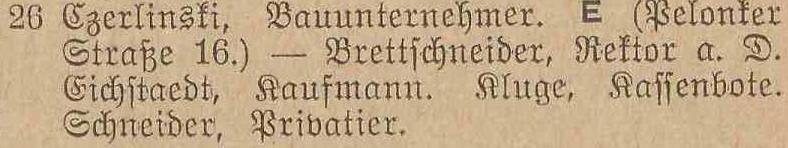 26 Czerlinski, Bauunternehmer. E (Pelonker
Straße 16.) — Brettschneider, Rektor a. D.
Eichstaedt, Kaufmann. Kluge, Kassenbote.
Schneider, Privatier.